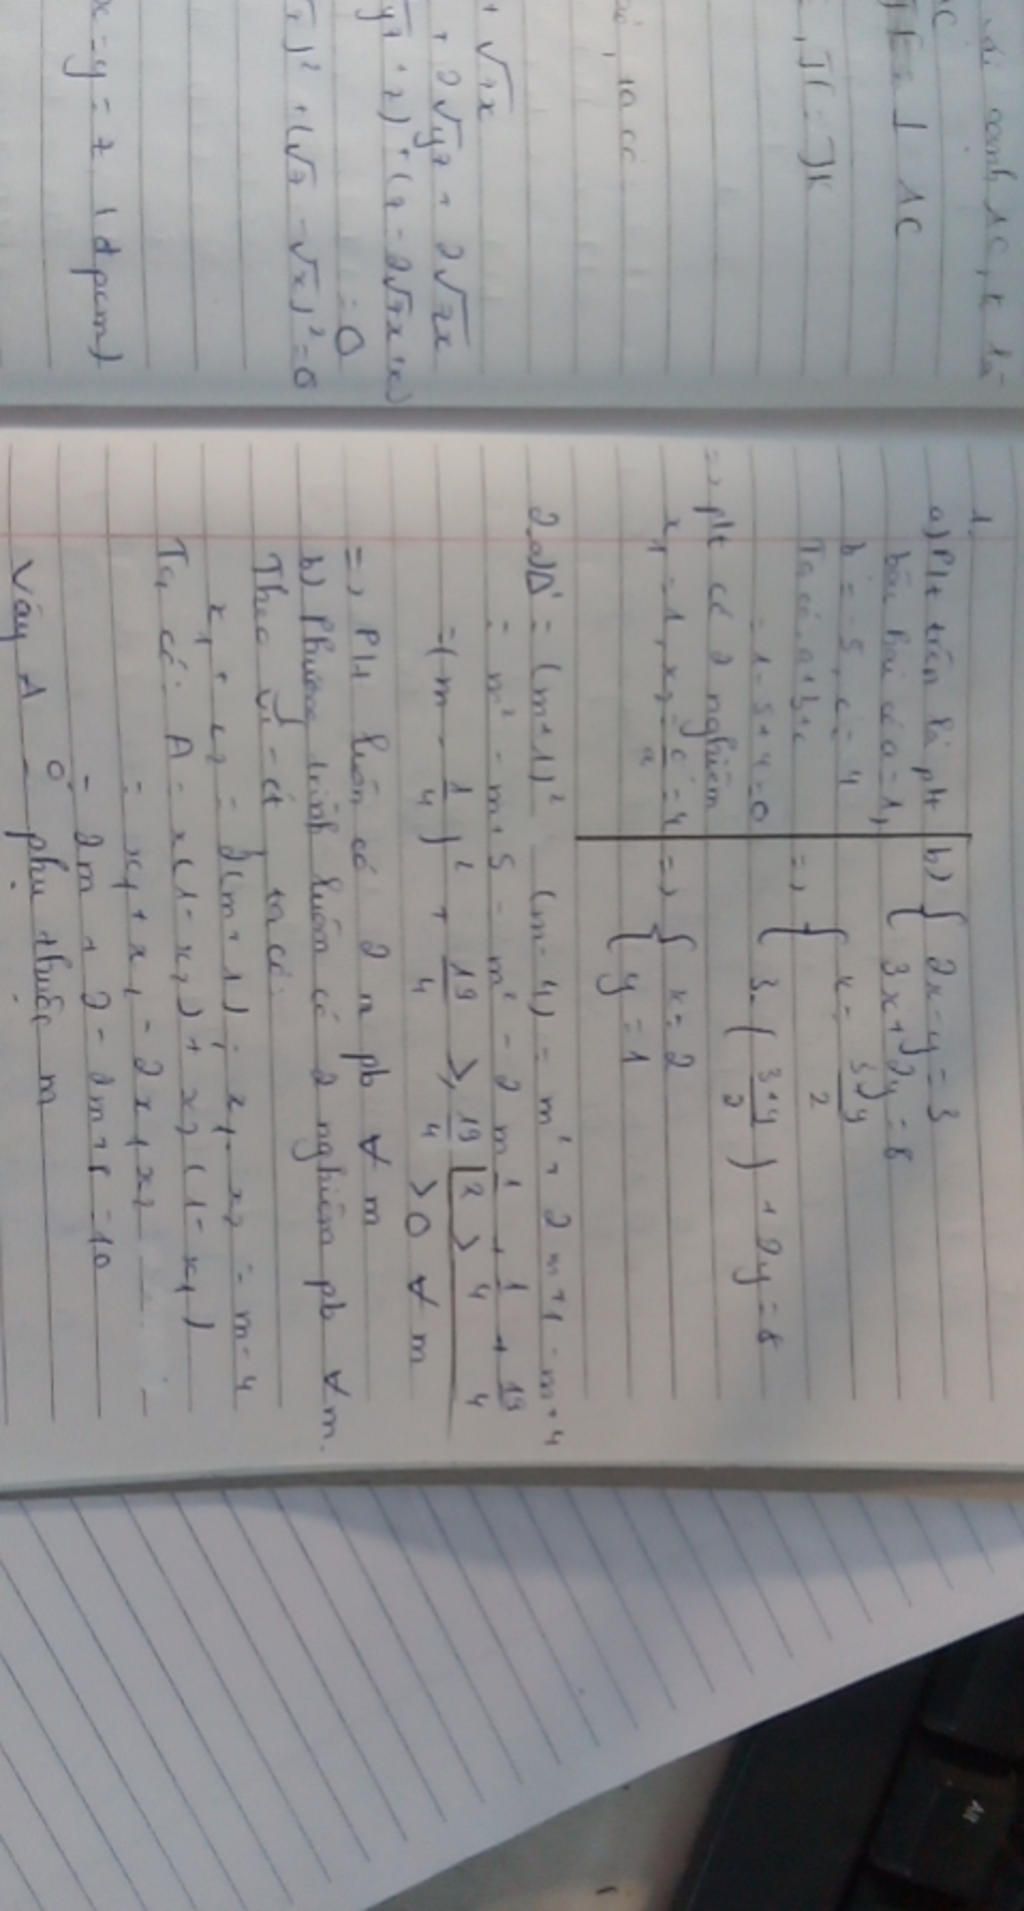 với cạnh AC, K là
AC
IE = I AC
, JI = JK
, ta có
+ √zx
+ 2√yz + 2√zx
√yz + z) + (z - 2√zx + x)
= 0
)² + (√z - √x)² = 0
x = y = z (đpcm)
1.
a) Pt trên là pt
bậc hai có a = 1,
b = -5, c = 4
Ta có: a+b+c
= 1 - 5 + 4 = 0
=> pt có 2 nghiệm
x₁ = 1, x₂ = c/a = 4
b) { 2x - y = 3
{ 3x + 2y = 8
=> { x = 3+y/2
{ 3. ( 3+y/2 ) + 2y = 8
=> { x = 2
{ y = 1
2. a) Δ' = (m+1)² (m-4) = m² + 2m + 1 - m + 4
= m² - m + 5 = m² - 2 m 1/2 + 1/4 + 19/4
= (m - 1/4)² + 19/4 ≥ 19/4 > 0 ∀ m
=> Pt luôn có 2 n pb ∀ m
b) Phương trình luôn có 2 nghiệm pb ∀m.
Theo Vi-ét ta có:
x₁ + x₂ = 2(m+1) ; x₁. x₂ = m - 4
Ta có: A = x(1 - x₂) + x₂(1 - x₁)
= x₁ + x₂ - 2x₁x₂
= 2m + 2 - 2m + 8 = 10
Vậy A ko phụ thuộc m
Alt